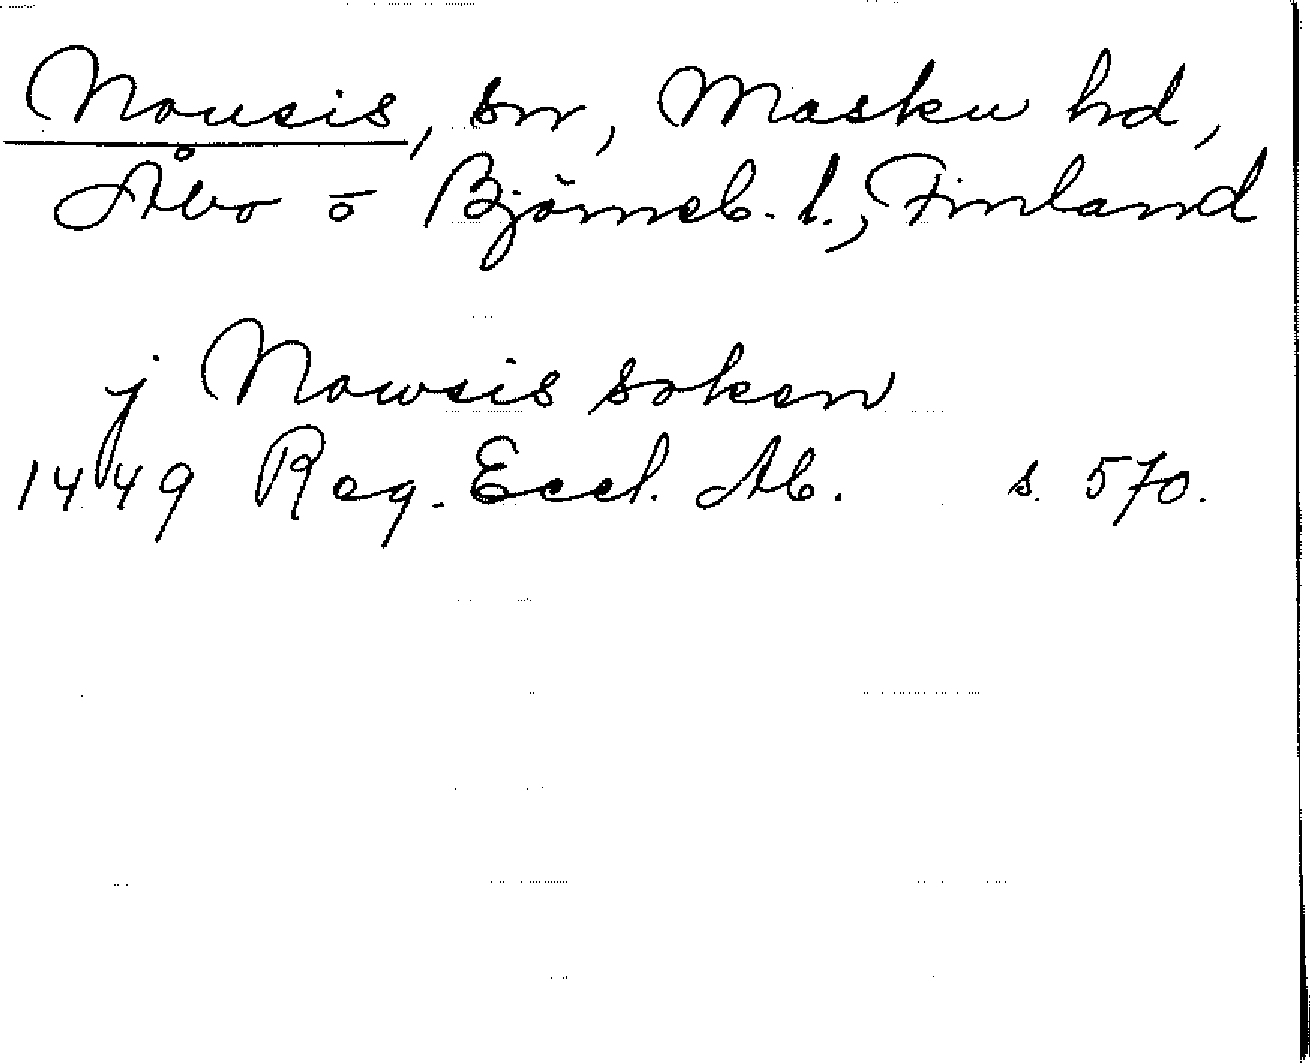 Nousis, sn, Masku hd,
Åbo o Björneb. l., Finland
j Nowsis soken
1449 Reg. Eccl. Ab. s. 570.